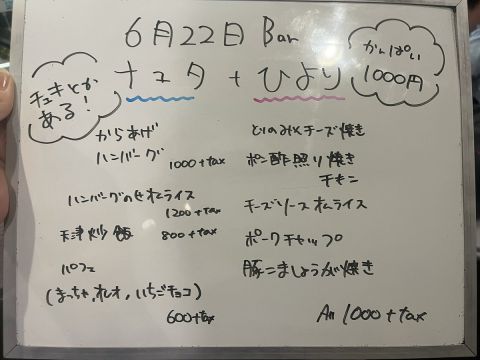 6月22日 Bar
ナユタ + ひより
チェキとか
ある!
かんぱい
1000円
からあげ
ハンバーグ
1000+tax
ハンバーグのせオムライス
1200+tax
天津炒飯 800+tax
パフェ
(まっちゃ,オレオ,いちごチョコ)
600+tax
とりのみそチーズ焼き
ポン酢照り焼き
チキン
チーズソースオムライス
ポークチャップ
豚こましょうが焼き
All 1000+tax